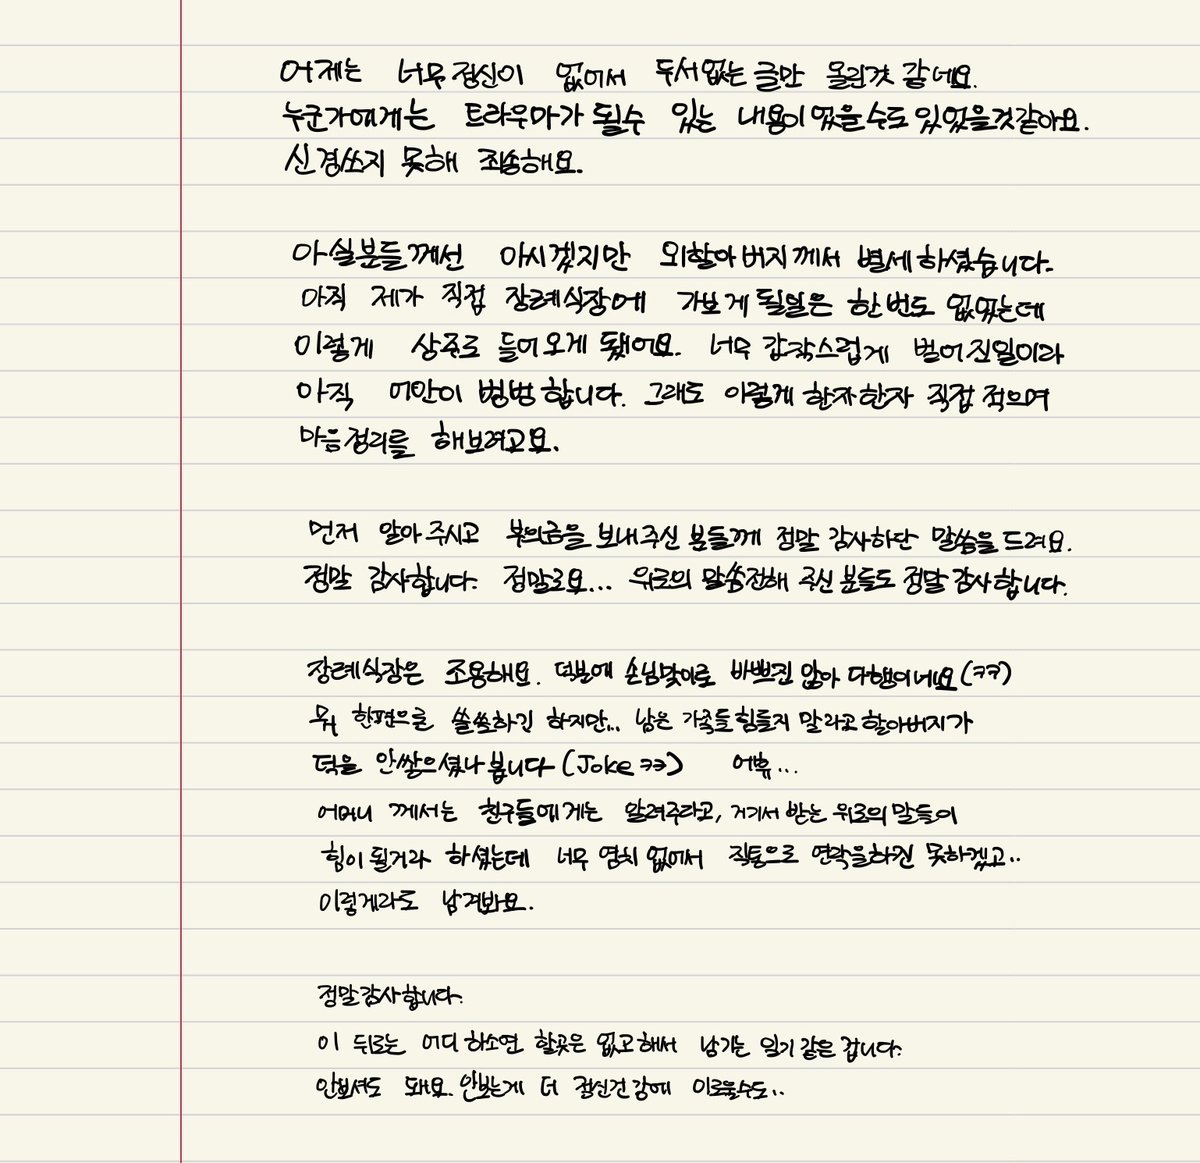 어제는 너무 정신이 없어서 두서없는 글만 올린것 같네요.
누군가에게는 트라우마가 될수 있는 내용이 었을수도 있었을것같아요.
신경쓰지 못해 죄송해요.
아실분들께선 아시겠지만 외할아버지께서 별세하셨습니다.
아직 제가 직접 장례식장에 가보게 될일은 한번도 없었는데
이렇게 상주로 들어오게 됐어요. 너무 갑작스럽게 벌어진일이라
아직 어안이 벙벙합니다. 그래도 이렇게 한자한자 직접 적으며
마음정리를 해보려고요.
먼저 알아주시고 부의금을 보내주신 분들께 정말 감사하단 말씀을 드려요.
정말 감사합니다. 정말로요... 위로의 말씀전해 주신 분들도 정말 감사합니다.
장례식장은 조용해요. 덕분에 손님맞이로 바쁘진 않아 다행이네요(ㅋㅋ)
뭐 한편으로 쓸쓸하긴 하지만.. 남은 가족들 힘들지 말라고 할아버지가
덕을 안쌓으셨나 봅니다 (Joke ㅋㅋ) 에휴...
어머니 께서는 친구들에게는 알려주라고, 거기서 받는 위로의 말들이
힘이 될거라 하셨는데 너무 염치 없어서 직통으로 연락을하긴 못하겠고..
이렇게라도 남겨봐요.
정말감사합니다.
이 뒤로는 어디 하소연 할곳은 없고해서 남기는 일기 같은 겁니다.
안보셔도 돼요. 안보는게 더 정신건강에 이로울수도..